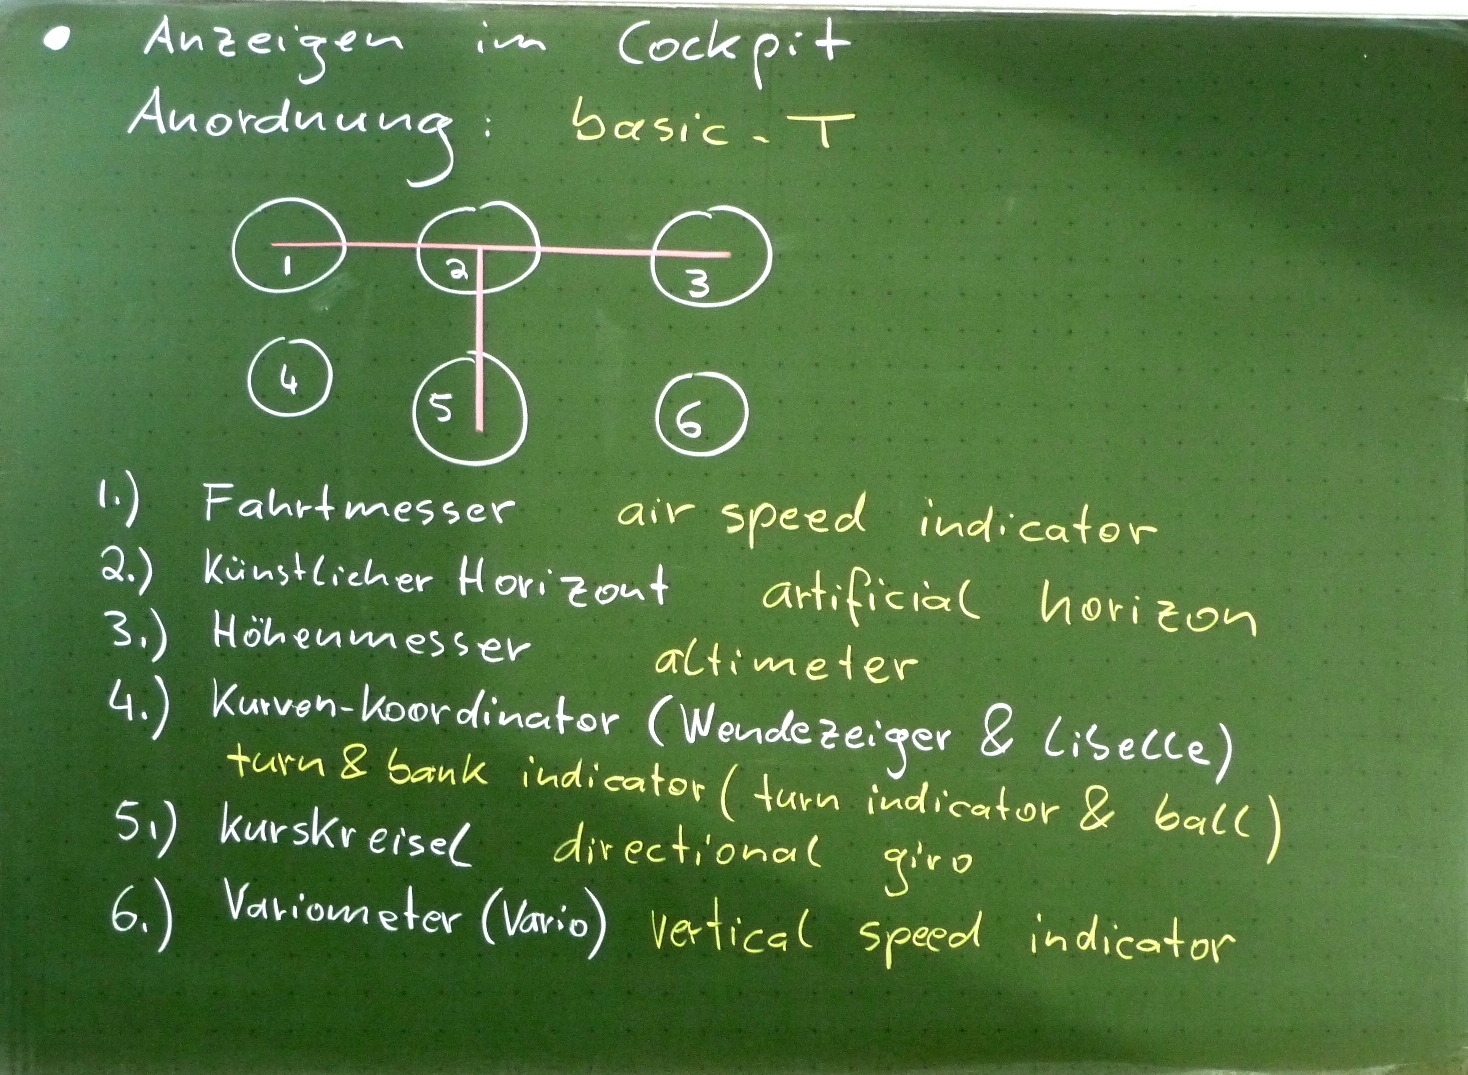 • Anzeigen im Cockpit
Anordnung: basic-T
1 2 3
4 5 6
1.) Fahrtmesser air speed indicator
2.) Künstlicher Horizont artificial horizon
3.) Höhenmesser altimeter
4.) Kurven-Koordinator (Wendezeiger & Liselle)
turn & bank indicator (turn indicator & ball)
5.) Kurskreisel directional giro
6.) Variometer (Vario) vertical speed indicator